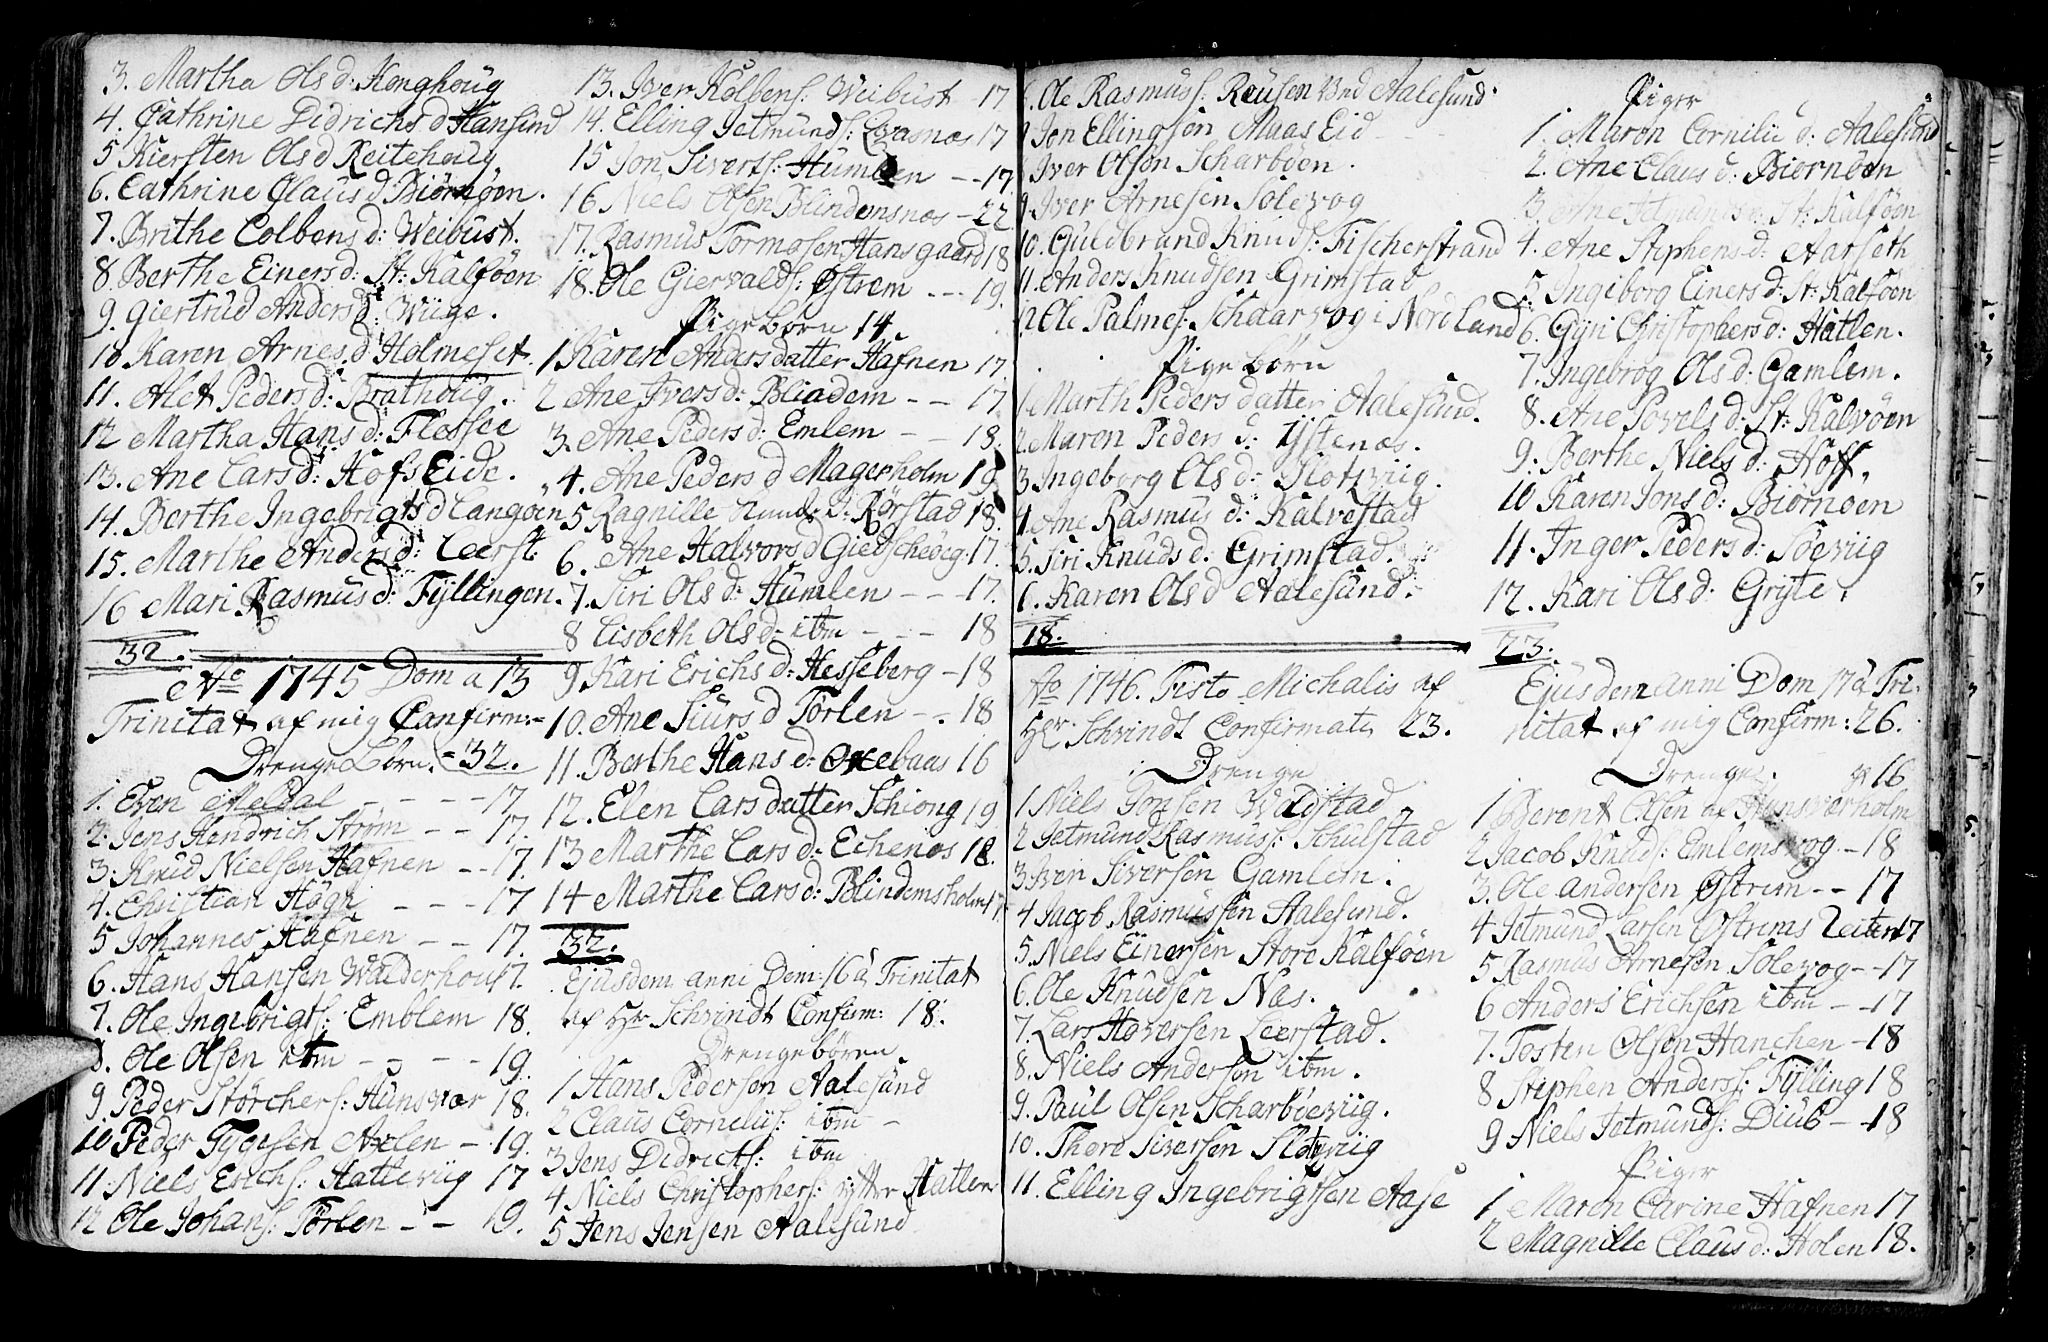 3. Martha Ols d: Konghoug
4. Cathrine Didrichs d Hansund
5 Kiersten Ols d Reitehoug
6. Cathrine Claus d Biörnöen.
7. Brithe Colbens d: Weibust.
8. Berthe Einers d: St: Kalföen
9. Giertrud Anders d: Wiige.
10 Karen Arnes d Holmeset.
11. Alet Peders d: Bratholiig.
12 Martha Hans d: Flessee
13. Ane Lars d: Hofs Eide.
14. Berthe Ingebrigts d Langöen
15. Marthe Anders d: Leerst.
16 Mari Rasmus d: Fÿllingen.
32.
Ao 1745 Dom a 13
Trinitat af mig Confirm:
Drenge Börn. 32.
1. Even Meldal - - - 17.
2. Jens Hendrich Ström - - 17.
3. Knud Nielsen Hafnen - - 17.
4. Christian Högh - - - 17
5 Johannes Hafnen - - 17.
6. Hans Hansen Walderhou 17.
7. Ole Ingebrigts: Emblem 18.
8. Ole Olsen ibm - - - 19.
9 Peder Störchers: Hunsvær 18.
10 Peder Tÿgesen Axlen - 19.
11. Niels Erichs: Hatteviig 17
12 Ole Johans: Törlen - - 19.
13. Iver Kolbens: Weibust - 17
14. Elling Jetmunds: Qvasnæs 17
15 Jon Siverts: Humlen - - 17.
16 Niels Olsen Blindemsnæs - 22
17. Rasmus Tormosen Hansgaard 18
18. Ole Giervalds: Östrem - - - 19.
Pige born 14.
1 Karen Anders datter Hafnen 17
2 Ane Ivers d: Bliadem - - 17.
3. Ane Peders d: Emlem - - 18.
4. Ane Peders d Magerholm 18
5 Ragnille Knuds d: Rörstad 18.
6. Ane Halvors d Giedscheöeg. 17.
7. Siri Ols d: Humlen - - - 17.
8 Lisbeth Ols d: ibm - - - 18
9 Kari Erichs d: Hesseberg - 18
10. Ane Siurs d Törlen - - 18
11. Berthe Hans d: Oxebaas 16
12. Elen Lars datter Schiong 19
13 Marthe Lars d: Echenæs 18
14 Marthe Lars d: Blindemsholm 17
32.
Ejusdem anni Dom: 16 à Trinitat
af Hr Schvindt Confirm: 18.
Drengebören.
1 Hans Pedersen Aalesund
2 Claus Cornelius: ibm -
3 Jens Didrichs: ibm
4 Niels Christophers: Hatlen
5 Jens Jensen Aalesund
6. Ole Rasmus: Reusen Ved Aalesund
7 Jon Ellingsön Maas Eid
8 Iver Olsön Scharböen.
9. Iver Arnesen Solevog
10. Guldbrand Knuds: Fischerstrand
11. Anders Knudsen Grimstad
12 Ole Palmes: Schaarvog i Nordland
Pige börn
1 Marth Peders datter Aalesund.
2. Maren Peders d: Ÿstenæs.
3 Ingeborg Ols d: Slotsviig.
4. Ane Rasmus d: Kalvestad
5. Siri Knuds d: Grimstad.
6. Karen Ols d Aalesund.
18.
Ao 1746. Fisto Michalis af
Hr: Schvindt Confirmati 23.
Drenge
1 Niels Jonsen Waldstad
2 Jetmund Rasmuss: Schulstad
3. Iven Siversen Gamlem.
4 Jacob Rasmussen Aalesund.
5. Niels Einersen Store Kalföen
6. Ole Knudsen Næs.
7. Lars Haversen Leerstad.
8. Niels Andersen ibm.
9. Paul Olsen Scharböeviig.
10. Thore Siversen Slotzviig
11. Elling Ingebrigtsen Aase
Piger
1. Maren Cornilie d: Aalesund
2. Ane Claus d: Biörnöen
3. Ane Jetmunds d: St: Kalföen
4. Ane Stephens d: Aarseth
5. Ingiborg Einers d: St: Kalföen
6. Gÿri Christophers d: Hatlen.
7. Ingebrog Ols d: Gamlem.
8. Ane Povels d: St: Kalvöen
9. Berthe Niels d: Hoff.
10 Karen Jons d: Biörnöen
11. Inger Peders d: Söeviig
12. Kari Ols d: Grÿte.
23.
Ejusdem anni Dom 17 à Tri-
nitat af mig Confirm: 26.
Drenge.
1 Berent Olsen af Hunsværholm 16
2 Jacob Knuds: Emlemsvog - 18
3. Ole Andersen Östrem - - 17
4 Jetmund Larsen Östrems Leiten 17
5 Rasmus Arnesen Solevog - - 17
6 Anders Erichsen ibm - - 17
7. Tosten Olsen Hanchen - 18
8 Stephen Anderss: Fÿlling 18
9 Niels Jetmunds: Diub - - 18
Piger
1 Maren Carine Hafnen 17.
2 Magnille Claus d: Holen 18.